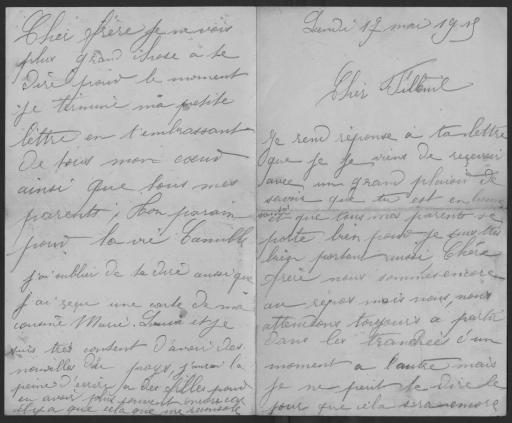 Lundi 17 mai 1915
Cher Filleul
Je rend réponse à ta lettre
que je je viens de reçevoir
avec un grand plaisir de
savoir que tu est en bonne
santé et que tous mes parents se
porte bien pour je suis très
bien portant aussi Chère
frère nous sommes encore
au repos mais nous nous
attendons toujours a partir
dans les tranchées d'un
moment a l'autre mais
je ne peut te dire le
jour que cela sera encore
Cher frère je ne vois
plus grand chose a te
dire pour le moment
je termine ma petite
lettre en t'embrassant
de tous mon cœur
ainsi que tous mes
parents, ton parain
pour la vie Camille
j'ai oublier de te dire aussi que
j'ai reçue une carte de ma
cousine Marie. et je
suis tres content d'avoir des
nouvelles du pays, j'aurai la
peine d'écrire a des filles pour
en avoir plus souvent encore car
il y a que cela que me